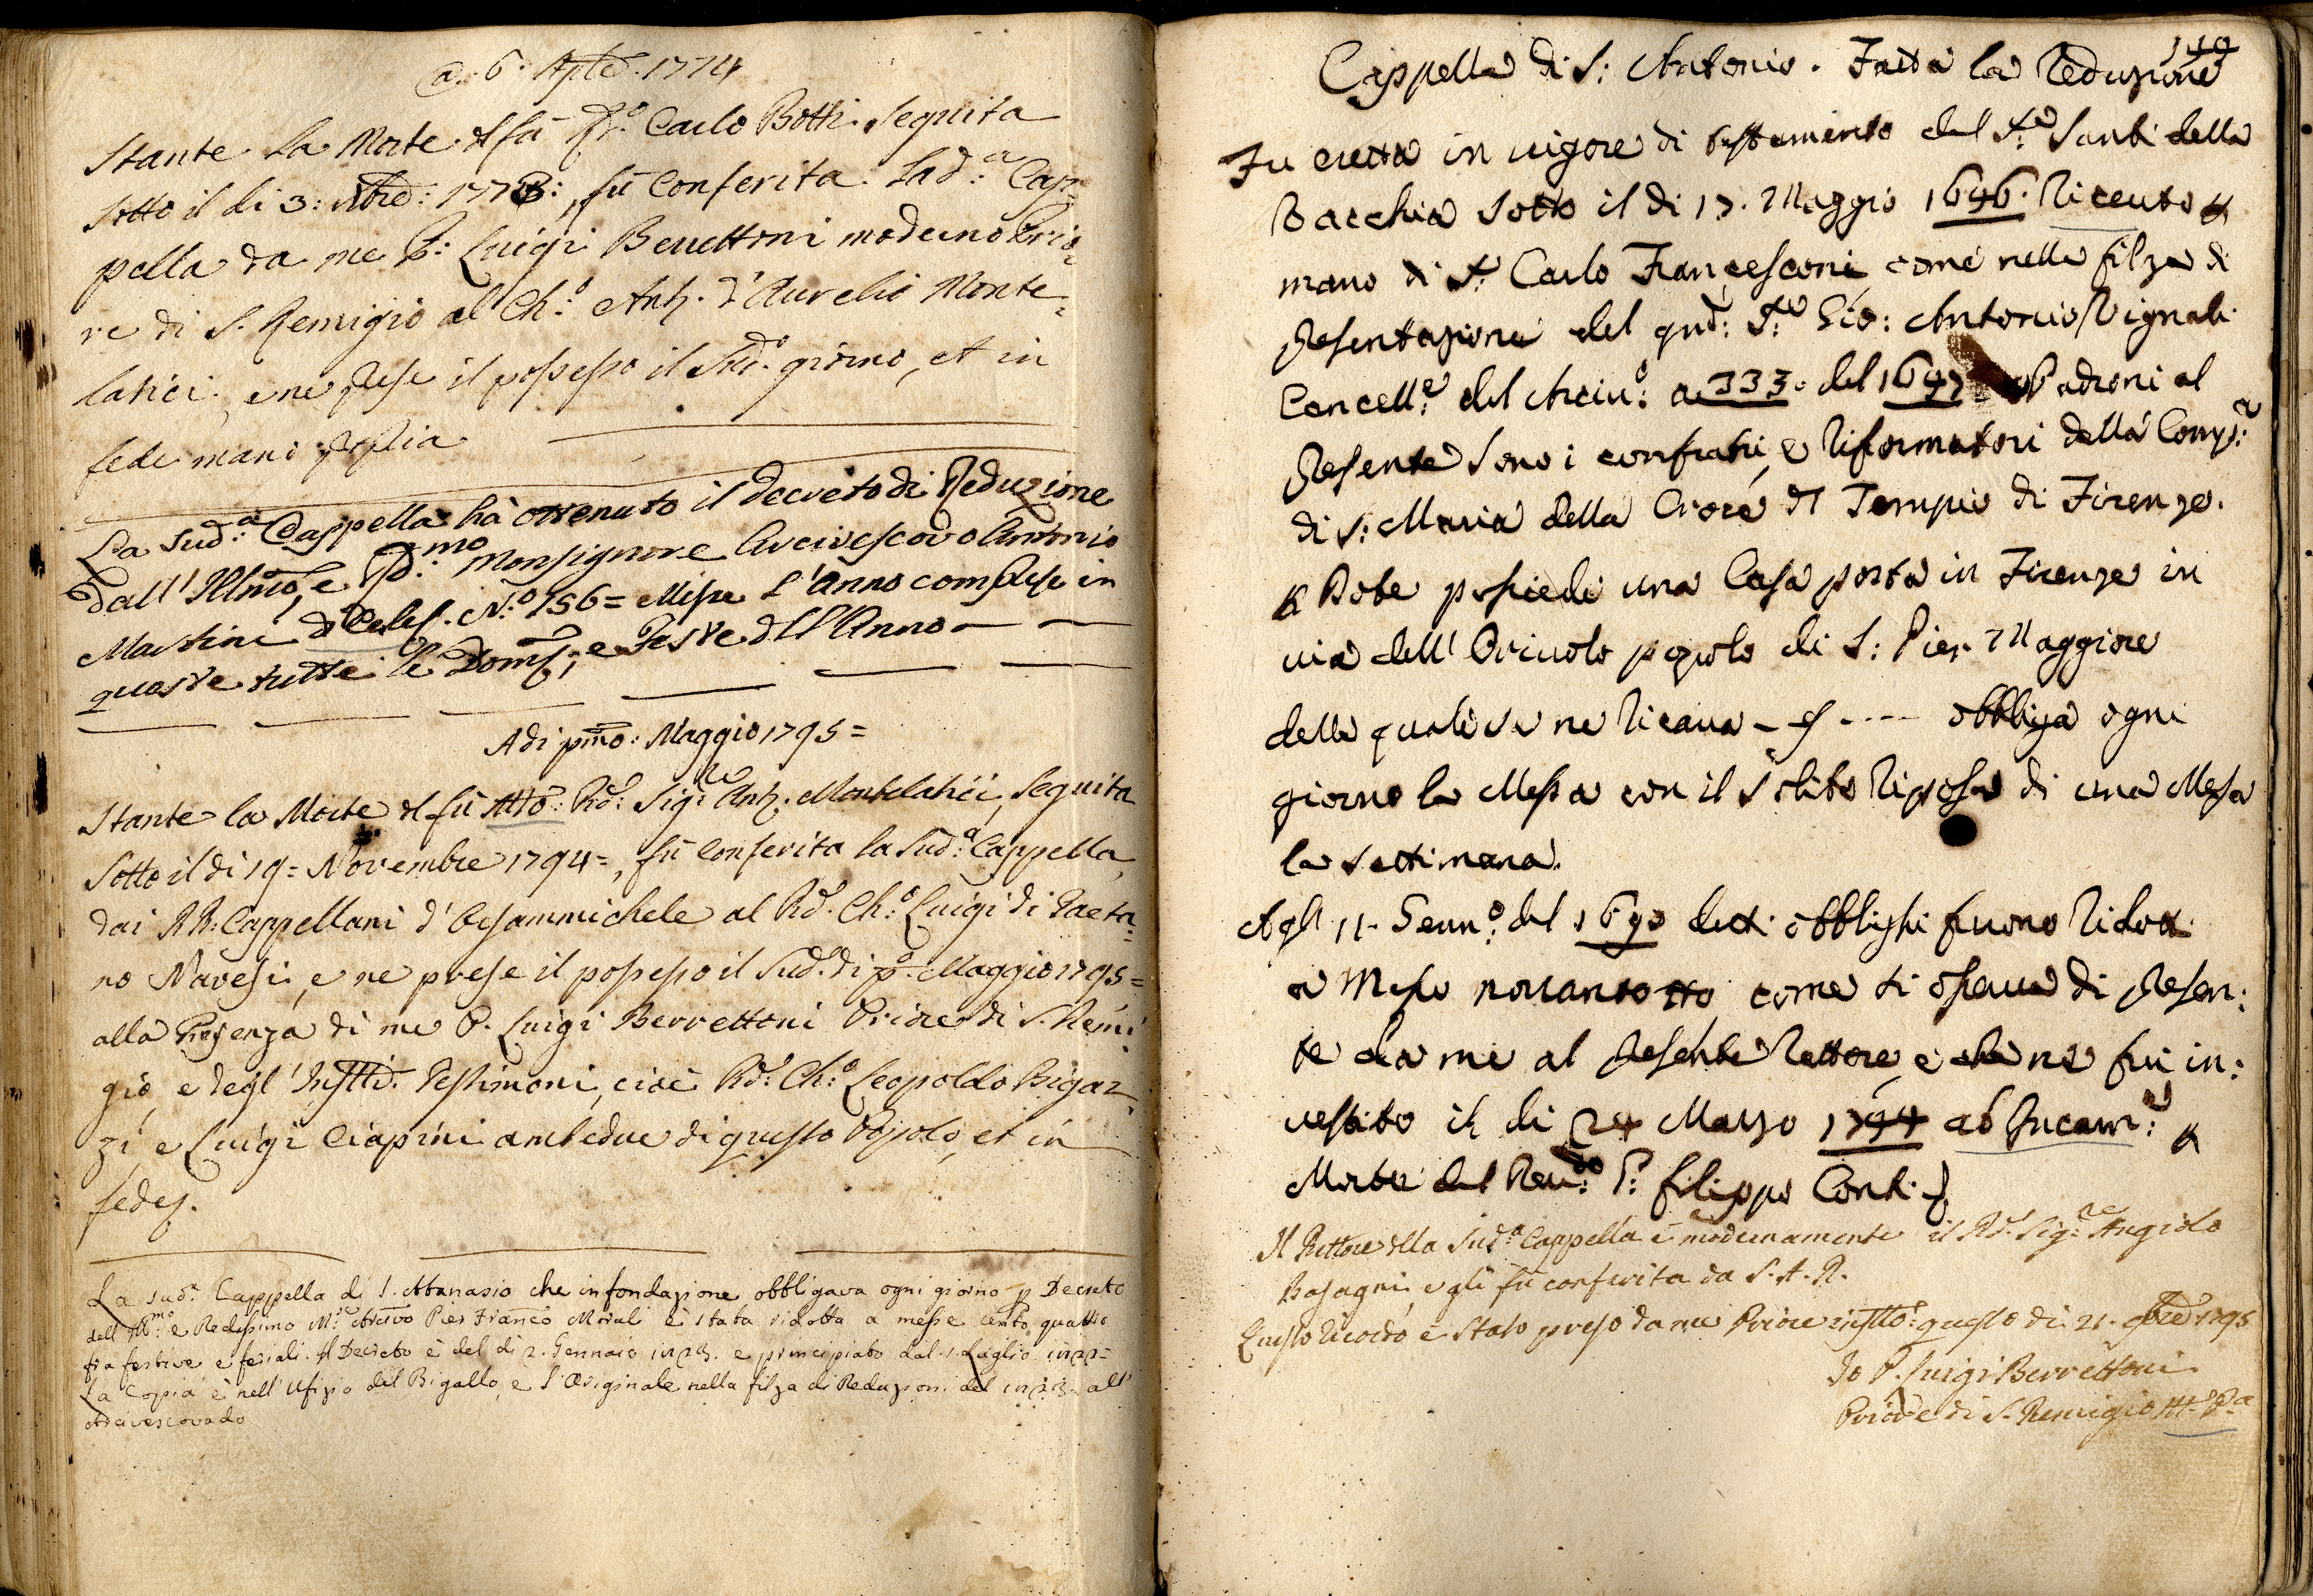 a. 6. Aple. 1774
Stante la Morte del fù Rdo. Carlo Botti seguita
sotto il di 3: Xbre: 1773:, fù conferita la d:a Cap=
pella da me P: Luigi Berrettoni moderno Prio=
re di S. Remigio al Ch:o Ant. d'Aurelio Monte=
latici, e ne prese il possesso il Sud.o giorno, et in
fede mano propria
La Sud:a Cappella hà ottenuto il decreto di Reduzione
dall' Illmo, e Rd:mo Monsignore Arcivescovo Antonio
Martini di Celeb. N:o 156= Messe l'Anno comprese in
queste tutte le Dom:, e Feste dell'Anno
A di pmo: Maggio 1795=
Stante la Morte del fù Mto: Rd: Sig:re Ant. Montelatici, seguita
sotto il di 19= Novembre 1794=, fù conferita la Sud:a Cappella
dai RR: Cappellani d'Orsammichele al Rd. Ch:o Luigi di Gaeta=
no Navesi, e ne prese il possesso il Sud.o di p.o Maggio 1795=
alla Presenza di me P. Luigi Berrettoni Priore di S. Remi=
gio, e degl' Infrtti. Testimoni, cioè Rd: Ch:o Leopoldo Bigaz=
zi, e Luigi Ciapini ambedue di questo Popolo, et in
fede.
La sud.a Cappella di S. Attanasio che in fondazione obbligava ogni giorno p Decreto
dell' Ill:mo e Redissimo M:re Arcivo Pier Franco Morali è stata ridotta a messe cento quattro
fra festive e feriali. Il Decreto è del di 2. Gennaio 1823. e principiato dal 1. Luglio 1822=
La Copia è nell' Ufizio del Bigallo, e l'Originale nella filza di Reduzioni del 1823. all'
Arcivescovado
149
Cappella di S: Antonio. Fatta la Reduzione
Fu eretta in vigore di testamento del Sr. Santi della
Vacchia sotto il di 17. Maggio 1646. Riceuto p
mano di Sr. Carlo Francesconi, come nella filza di
Presentazioni del qnd: Sr: Gio: Antonio Vignali
Cancell:e del Arciv:o a 333. del 1647 Padroni al
Presente sono i confrati, e Riformatori della Comp:a
di S: Maria della Croce del Tempio di Firenze.
p Dote possiede una Casa posta in Firenze in
via dell' Orivolo popolo di S: Pier Maggiore
della quale se ne ricava - ---- obbliga ogni
giorno la Messa con il solito riposo di una Messa
la settimana.
Agl' 11. Genn:o del 1690 detti obblighi furono Ridotti
a Messe novantotto, come si osserva di Presen:
te da me al Presente Rettore, e che ne fui in:
vestito il di 24 Marzo 1744 ab Incarn:e p
Morte del Reu:do P: Filippo Conti
Il Rettore della Sud:a Cappella è modernamente il Rd. Sig:re Angiolo
Basagni, e gli fù conferita da S. A. R.
Questo ricordo è stato preso da me Priore infrtto: questo di 21. 9bre 1795
Io P. Luigi Berrettoni
Priore di S. Remigio M. P.a